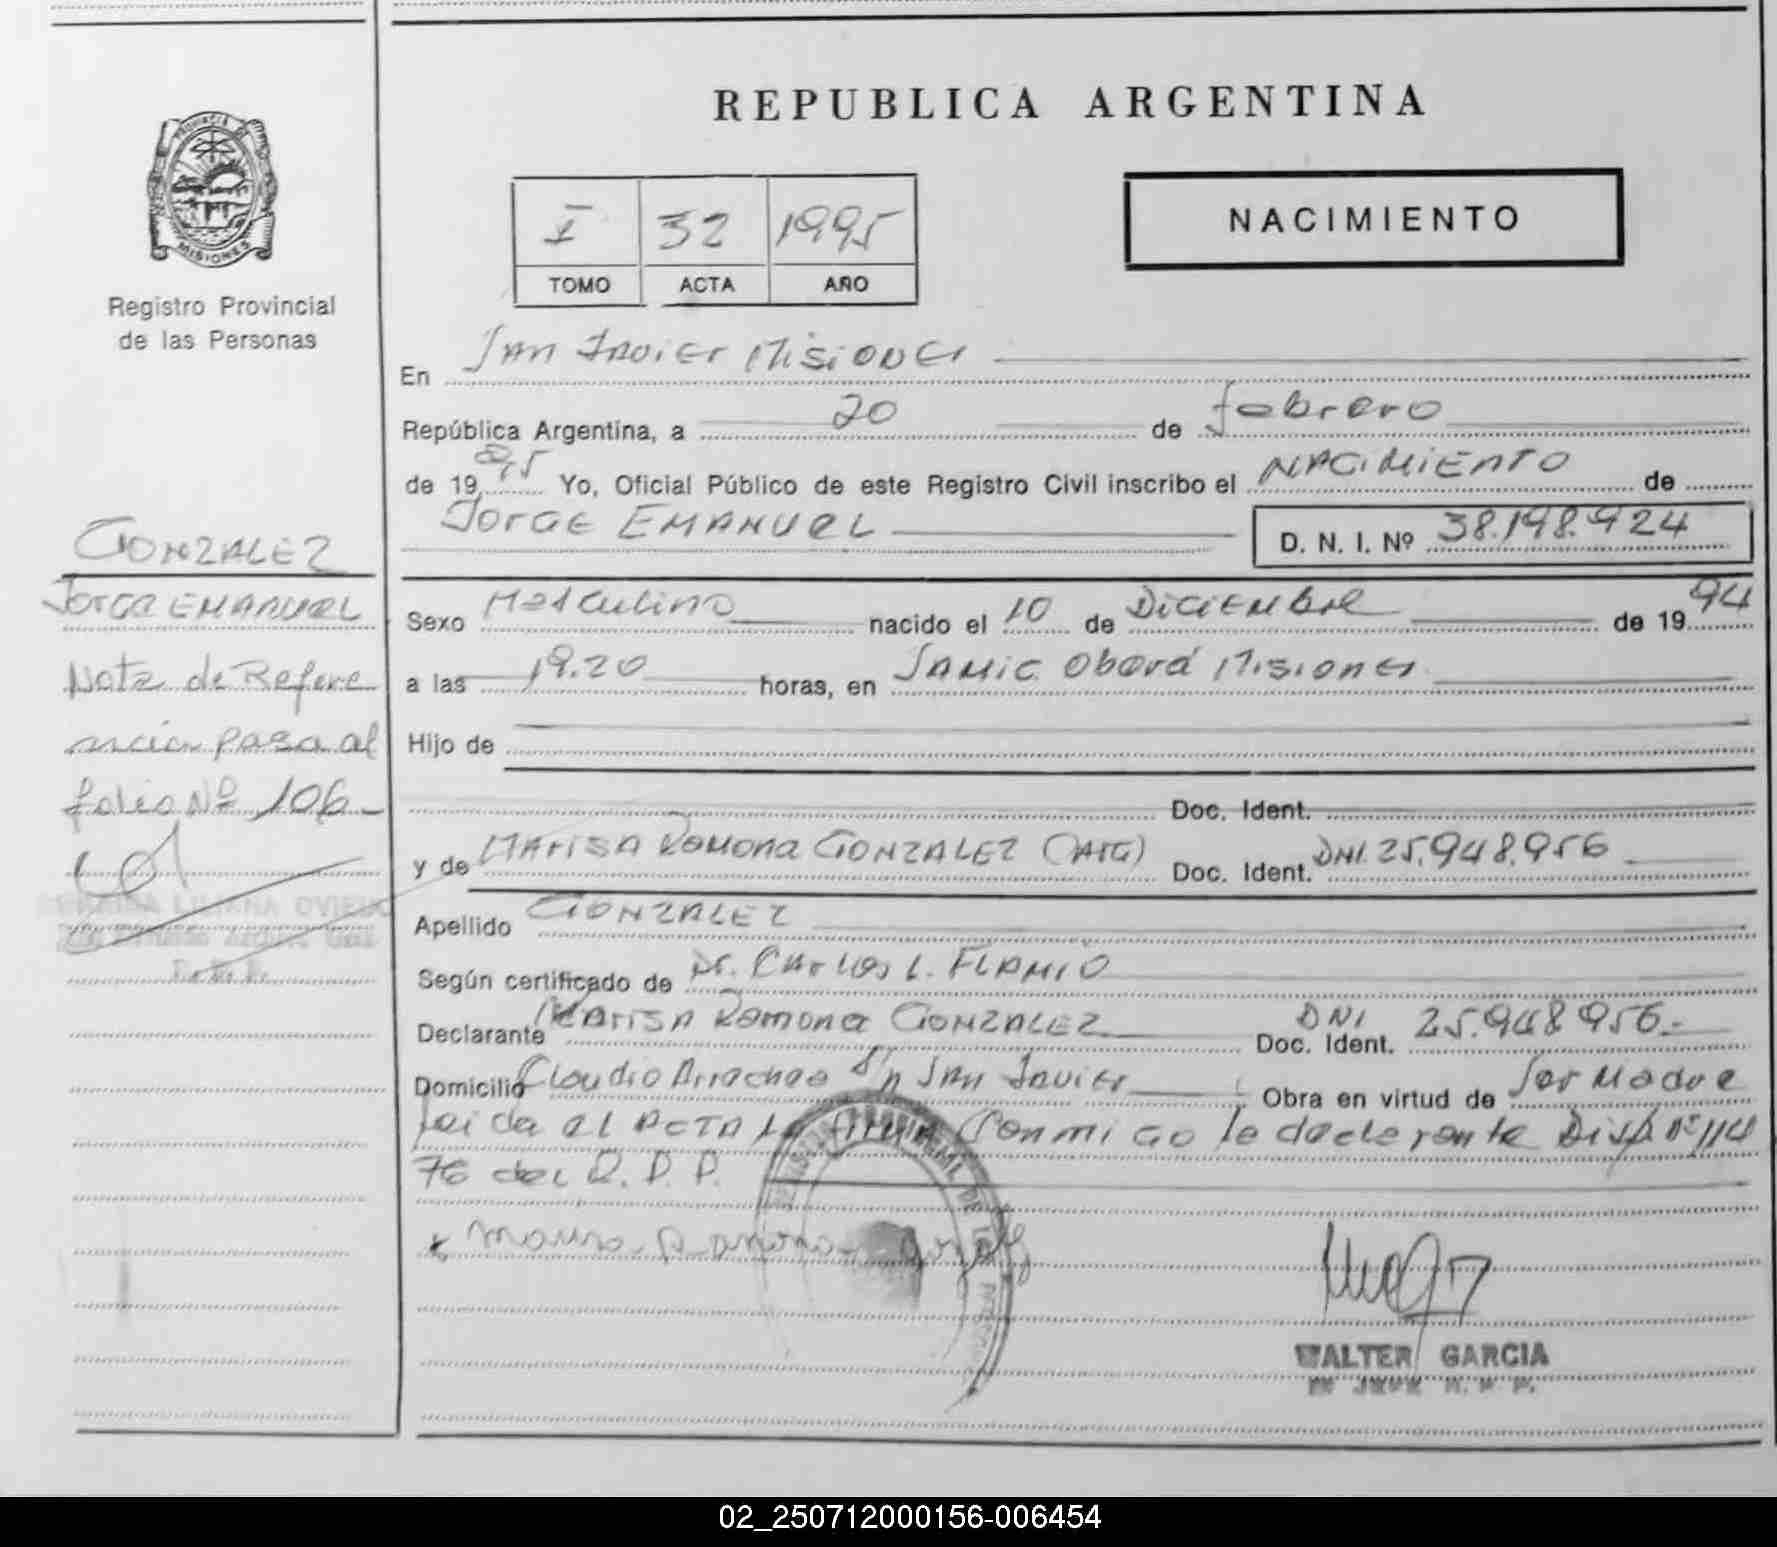 REPUBLICA ARGENTINA
PROVINCIA DE MISIONES
Registro Provincial
de las Personas
I 32 1995
TOMO ACTA AÑO
NACIMIENTO
En San Javier Misiones
República Argentina, a 20 de febrero
de 19 95 Yo, Oficial Público de este Registro Civil inscribo el NACIMIENTO de
JORGE EMANUEL D. N. I. Nº 38.198.924
GONZALEZ
JORGE EMANUEL
Nota de Refere
ncia pasa al
folio Nº 106
LILIANA OVIEDO
Sexo Masculino nacido el 10 de Diciembre de 19 94
a las 19.20 horas, en SAMIC Oberá Misiones
Hijo de
Doc. Ident.
y de MARISA Ramona GONZALEZ (ARG) Doc. Ident. DNI 25.948.956
Apellido GONZALEZ
Según certificado de Dr. Carlos L.
Declarante MARISA Ramona GONZALEZ DNI Doc. Ident. 25.948.956.-
Domicilio Claudio Arrechea s/n San Javier Obra en virtud de Ser Madre
Leida el ACTA La firma Conmigo la declarante Disp Nº 114
76 del R. P. P.
WALTER GARCIA
02_250712000156-006454